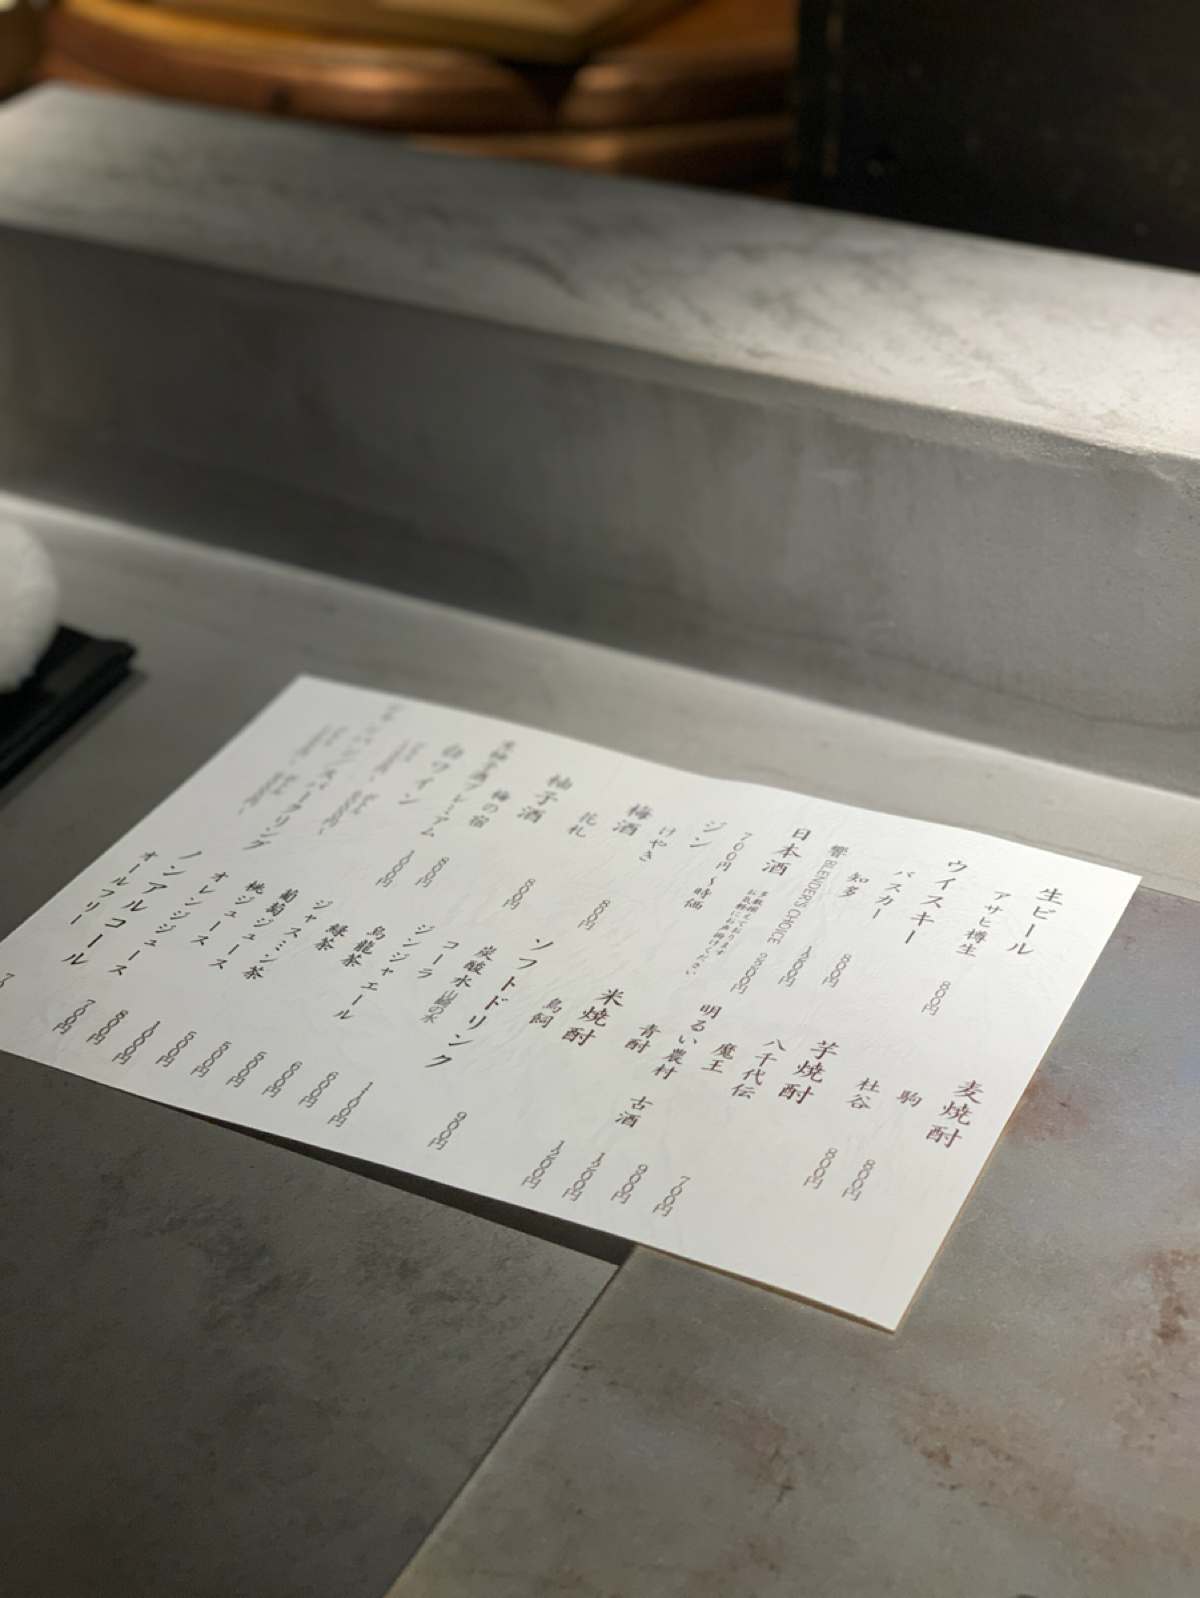 生ビール
アサヒ樽生 800円
ウイスキー
バスカー 800円
知多 1,300円
響 BLENDER'S CHOICE
日本酒
多数揃えております
お気軽にお声掛けください
700円～時価
ジン
けやき 800円
梅酒
花札 800円
柚子酒
梅の宿 800円
白ワイン
麦焼酎
駒 800円
杜谷 800円
芋焼酎
八千代伝 700円
魔王 900円
明るい農村
青酎 古酒
米焼酎
鳥飼 900円
ソフトドリンク
炭酸水 山崎の水 1,000円
コーラ 600円
ジンジャエール 600円
烏龍茶 500円
緑茶 500円
ジャスミン茶 500円
葡萄ジュース 1,000円
桃ジュース 800円
オレンジジュース 700円
ノンアルコール
オールフリー